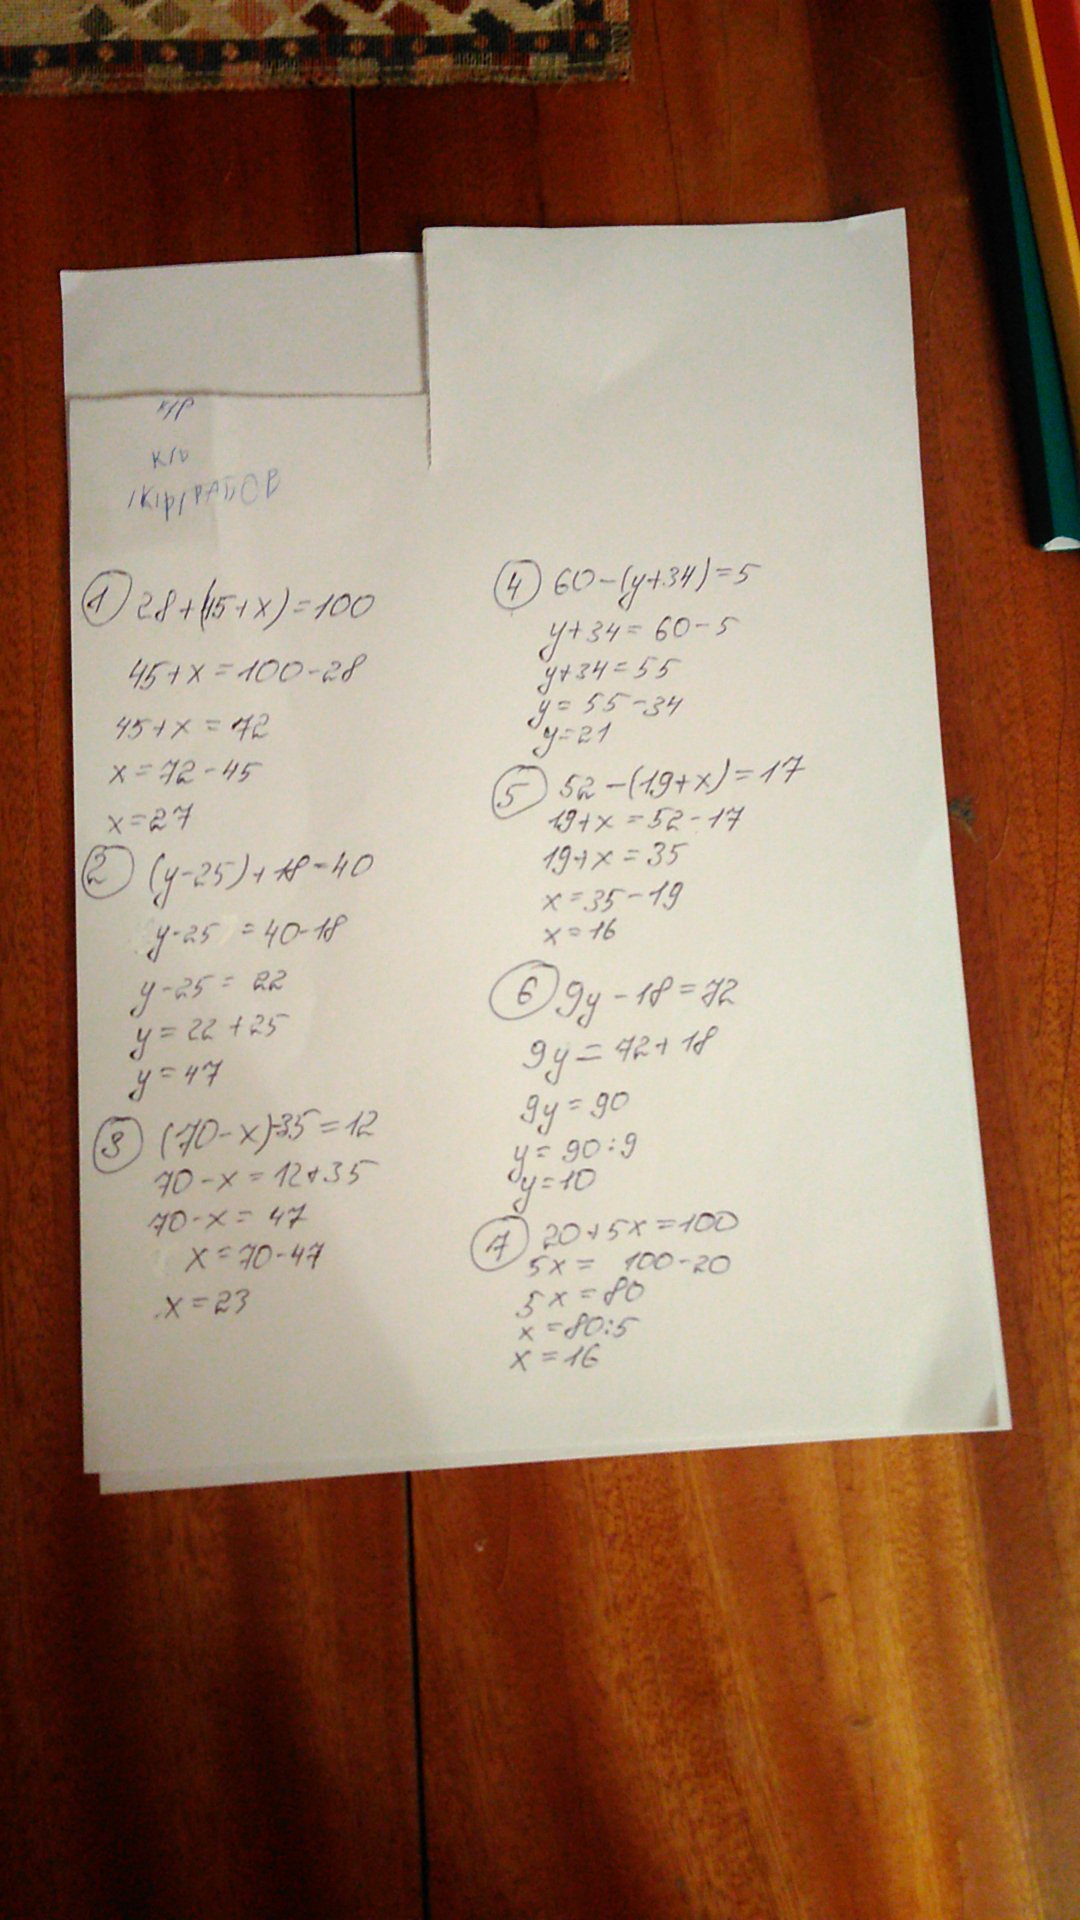 К/Р
① 28+(45+x)=100
45+x=100-28
45+x=72
x=72-45
x=27
② (y-25)+18=40
y-25=40-18
y-25=22
y=22+25
y=47
③ (70-x)-35=12
70-x=12+35
70-x=47
x=70-47
x=23
④ 60-(y+34)=5
y+34=60-5
y+34=55
y=55-34
y=21
⑤ 52-(19+x)=17
19+x=52-17
19+x=35
x=35-19
x=16
⑥ 9y-18=72
9y=72+18
9y=90
y=90:9
y=10
⑦ 20+5x=100
5x=100-20
5x=80
x=80:5
x=16